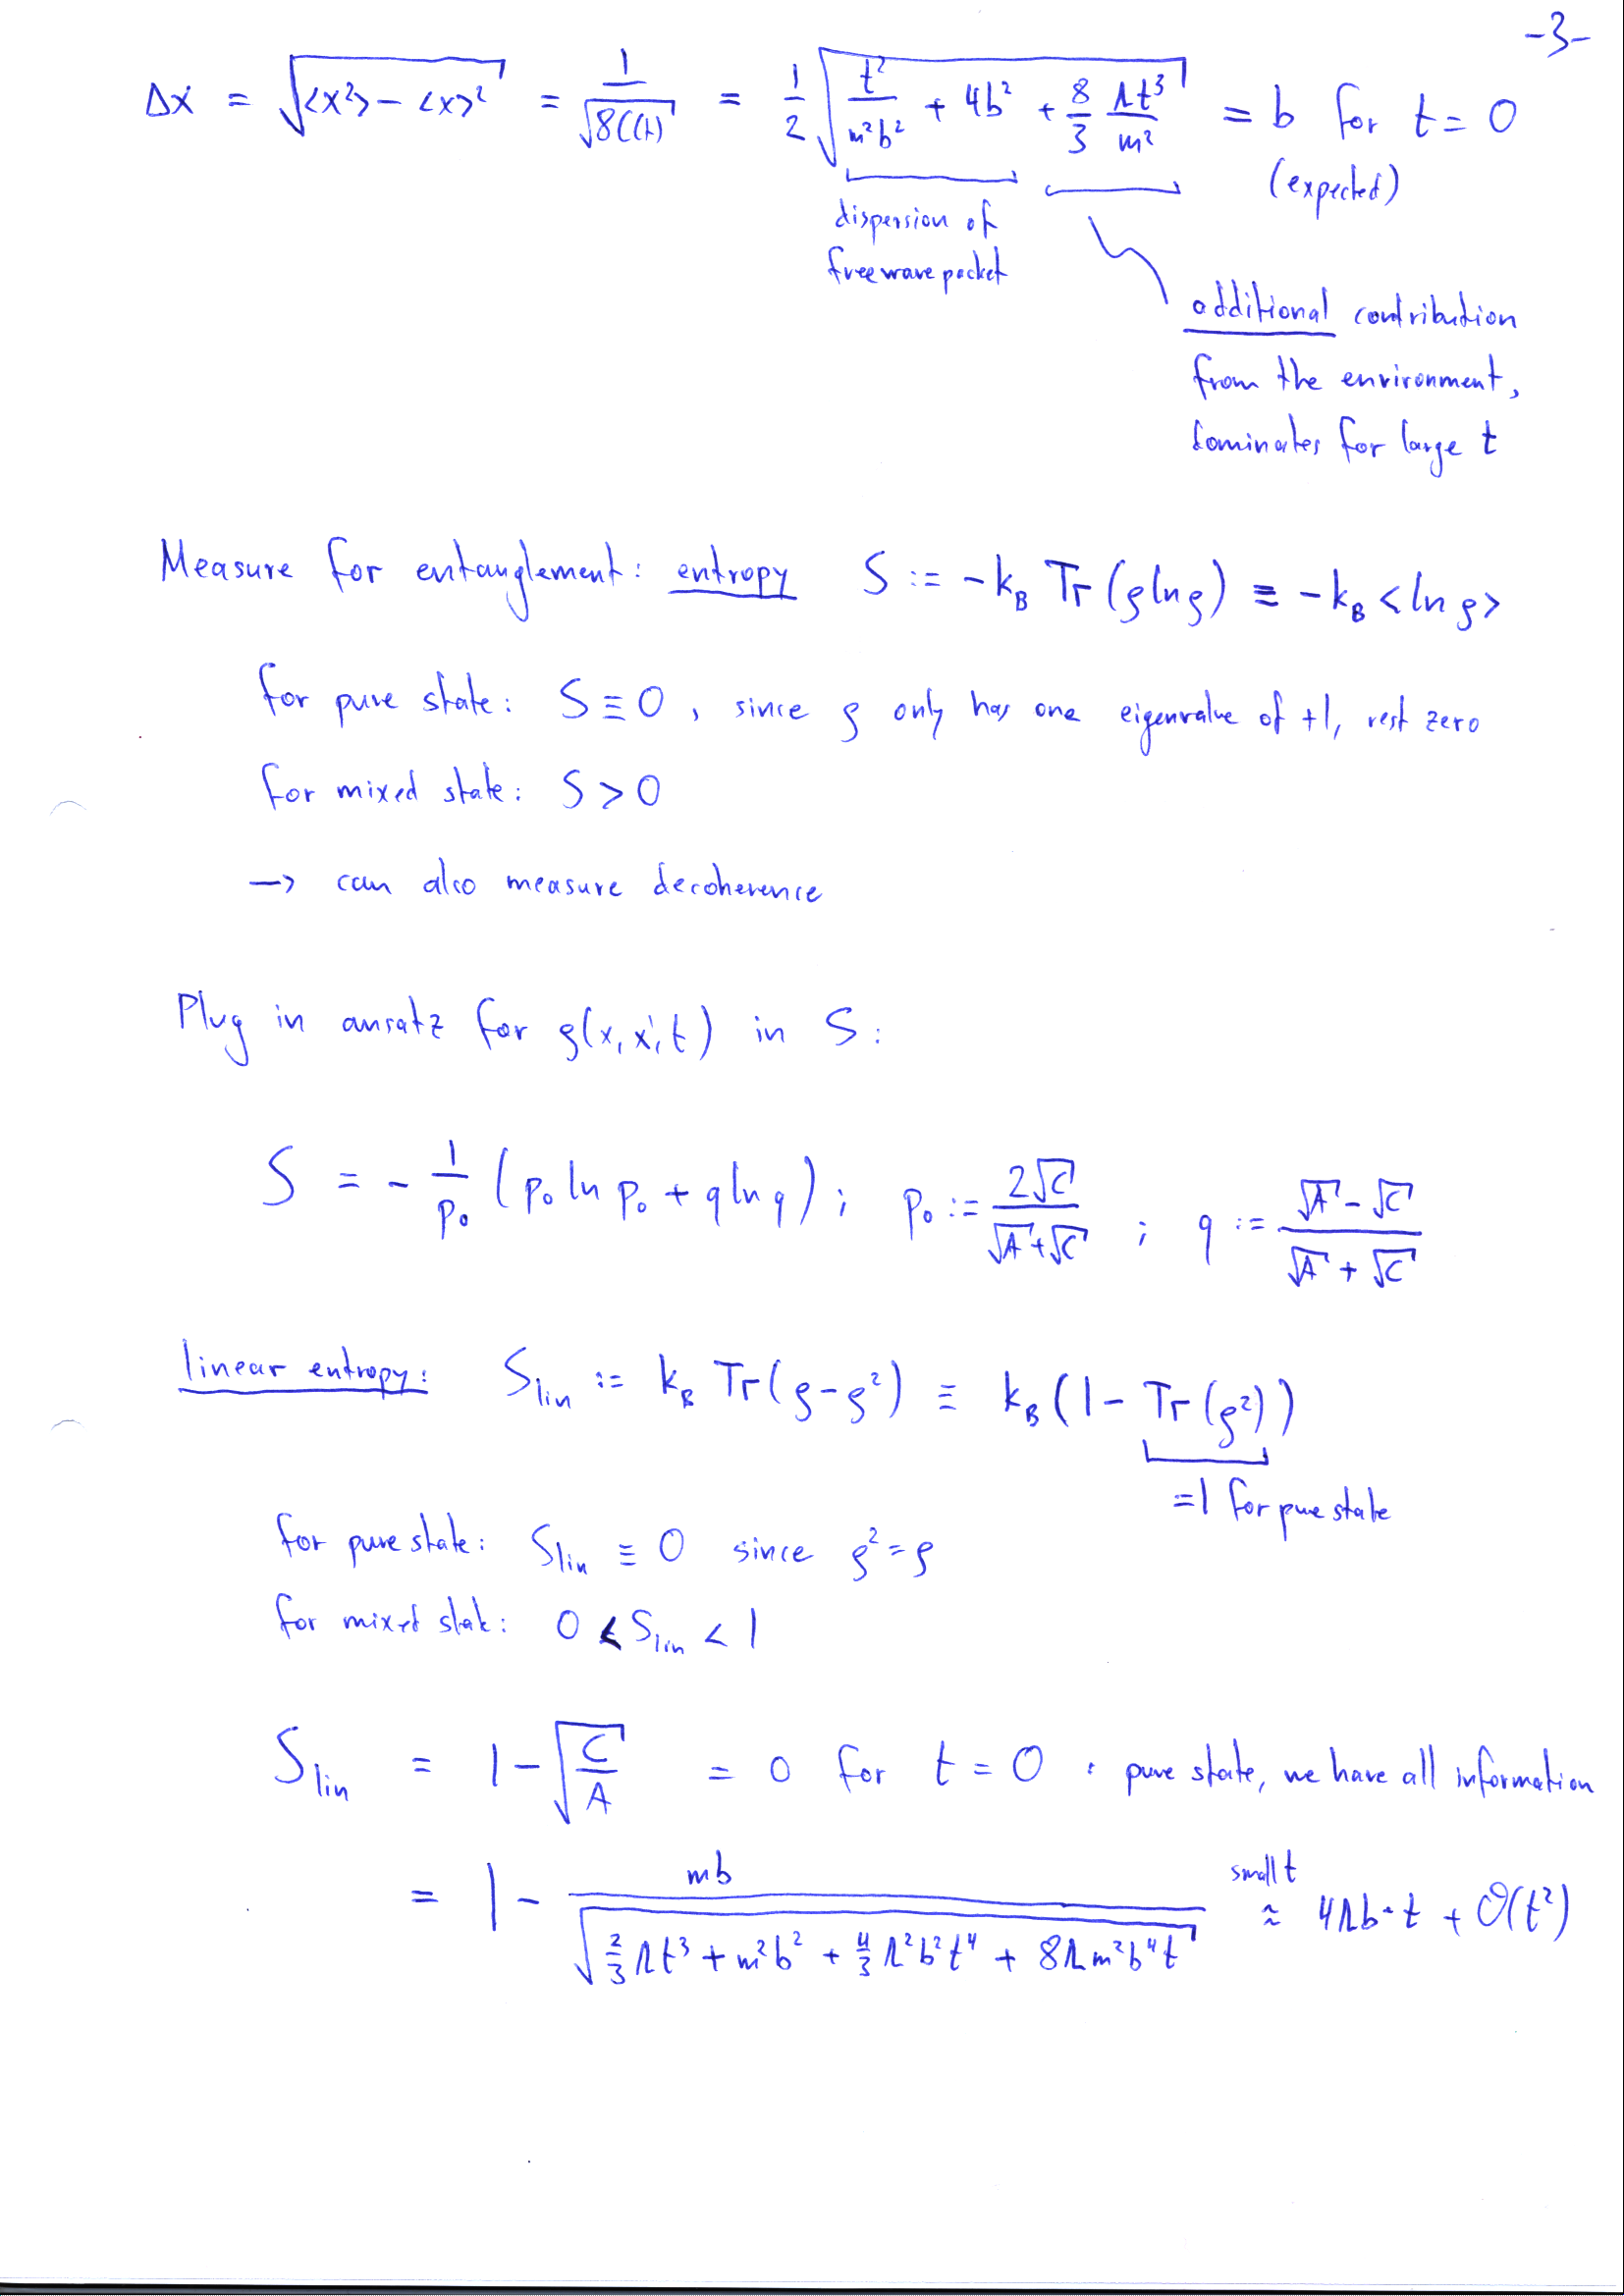 -3-
Δx = √(<x²> - <x>²) = 1/√(8C(t)) = 1/2 √(t²/(m²b²) + 4b² + 8/3 Λt³/m²) = b for t = 0
(expected)
dispersion of
free wave packet
additional contribution
from the environment,
dominates for large t
Measure for entanglement: entropy S := -k_B Tr(ρ ln ρ) ≡ -k_B <ln ρ>
for pure state: S ≡ 0, since ρ only has one eigenvalue of +1, rest zero
for mixed state: S > 0
→ can also measure decoherence
Plug in ansatz for ρ(x,x';t) in S:
S = - 1/p₀ (p₀ ln p₀ + q ln q); p₀ := 2√C/(√A+√C) ; q := (√A - √C)/(√A + √C)
linear entropy: S_lin := k_B Tr(ρ-ρ²) ≡ k_B (1 - Tr(ρ²))
=1 for pure state
for pure state: S_lin ≡ 0 since ρ² = ρ
for mixed state: 0 < S_lin < 1
S_lin = 1 - √(C/A) = 0 for t = 0 : pure state, we have all information
= 1 - mb/√(2/3 Λt³ + m²b² + 4/3 Λ²b²t⁴ + 8Λm²b⁴t) small t ≈ 4Λb·t + O(t²)